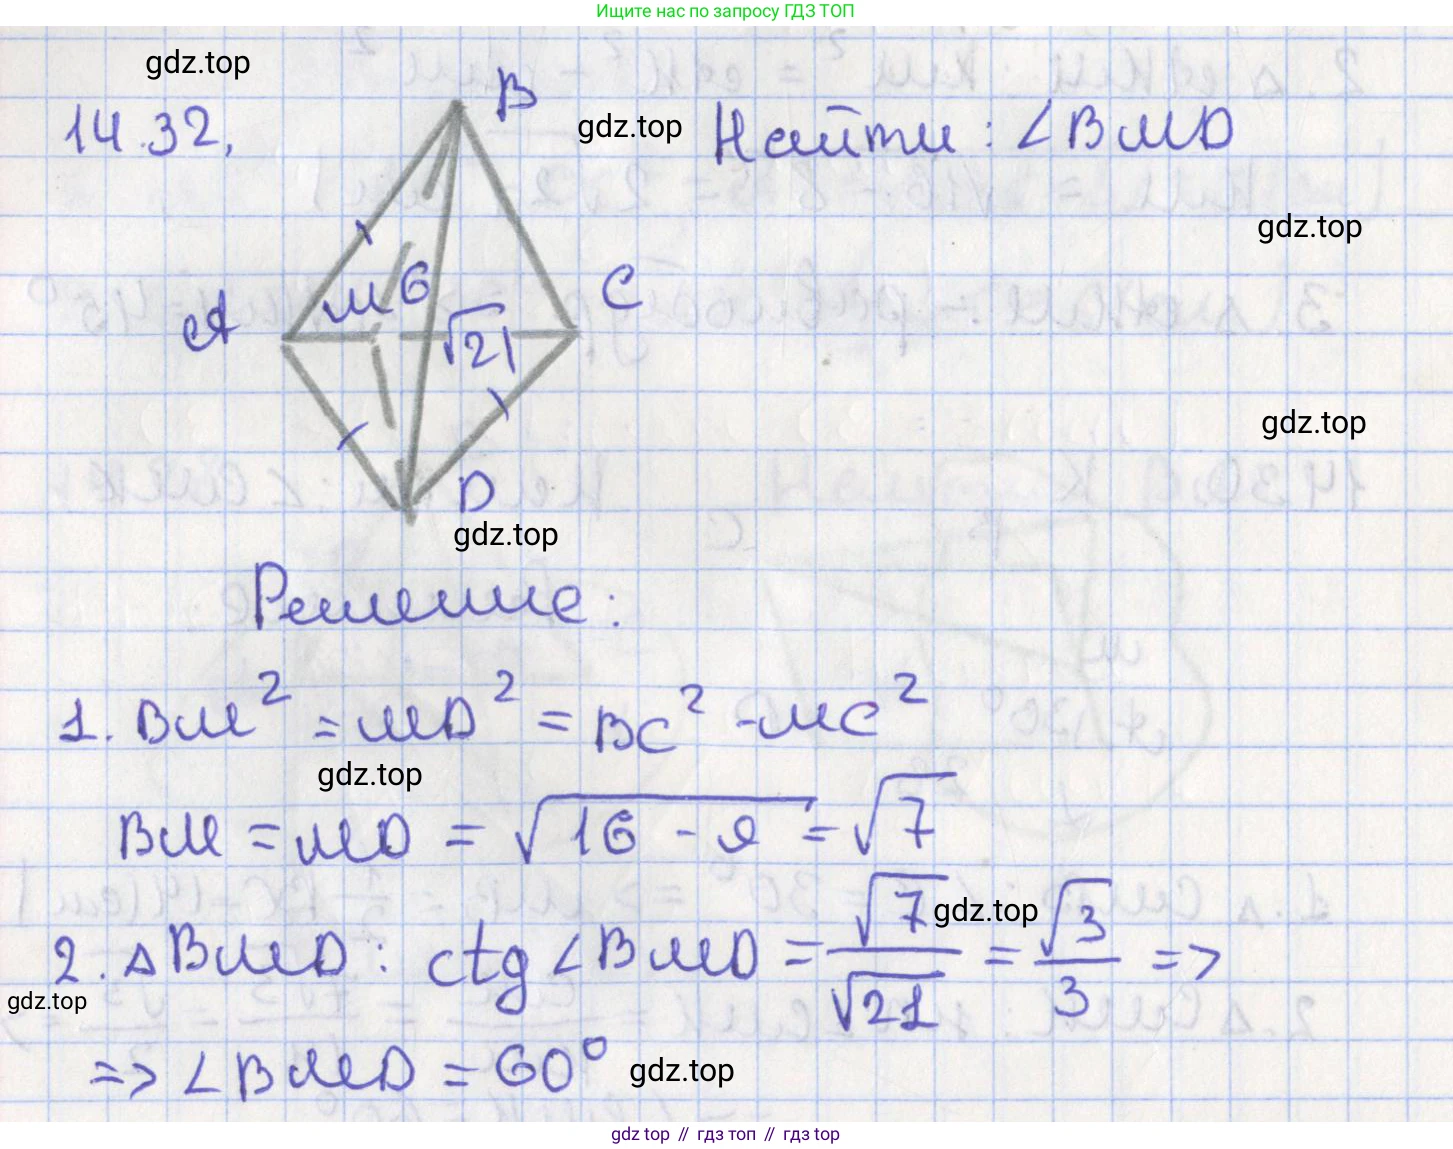 Ищите нас по запросу ГДЗ ТОП
gdz.top
14.32.
B
gdz.top
Найти: ∠BMD
gdz.top
A
M
6
C
√21
gdz.top
D
gdz.top
Решение:
1. BM² = MD² = BC² - MC²
gdz.top
BM = MD = √16 - 9 = √7
2. △BMD: ctg ∠BMD = √7/√21 = √3/3 =>
gdz.top
gdz.top
=> ∠BMD = 60°
gdz.top
gdz top // гдз топ // гдз top